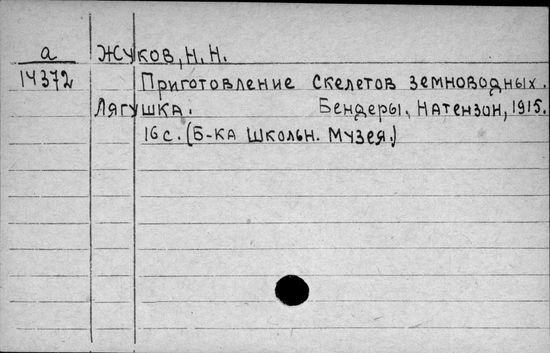 а Жуков, Н. Н.
14372 Приготовление скелетов земноводных.
Лягушка. Бендеры, Натензон, 1915.
16 с. (Б-ка школьн. музея.)